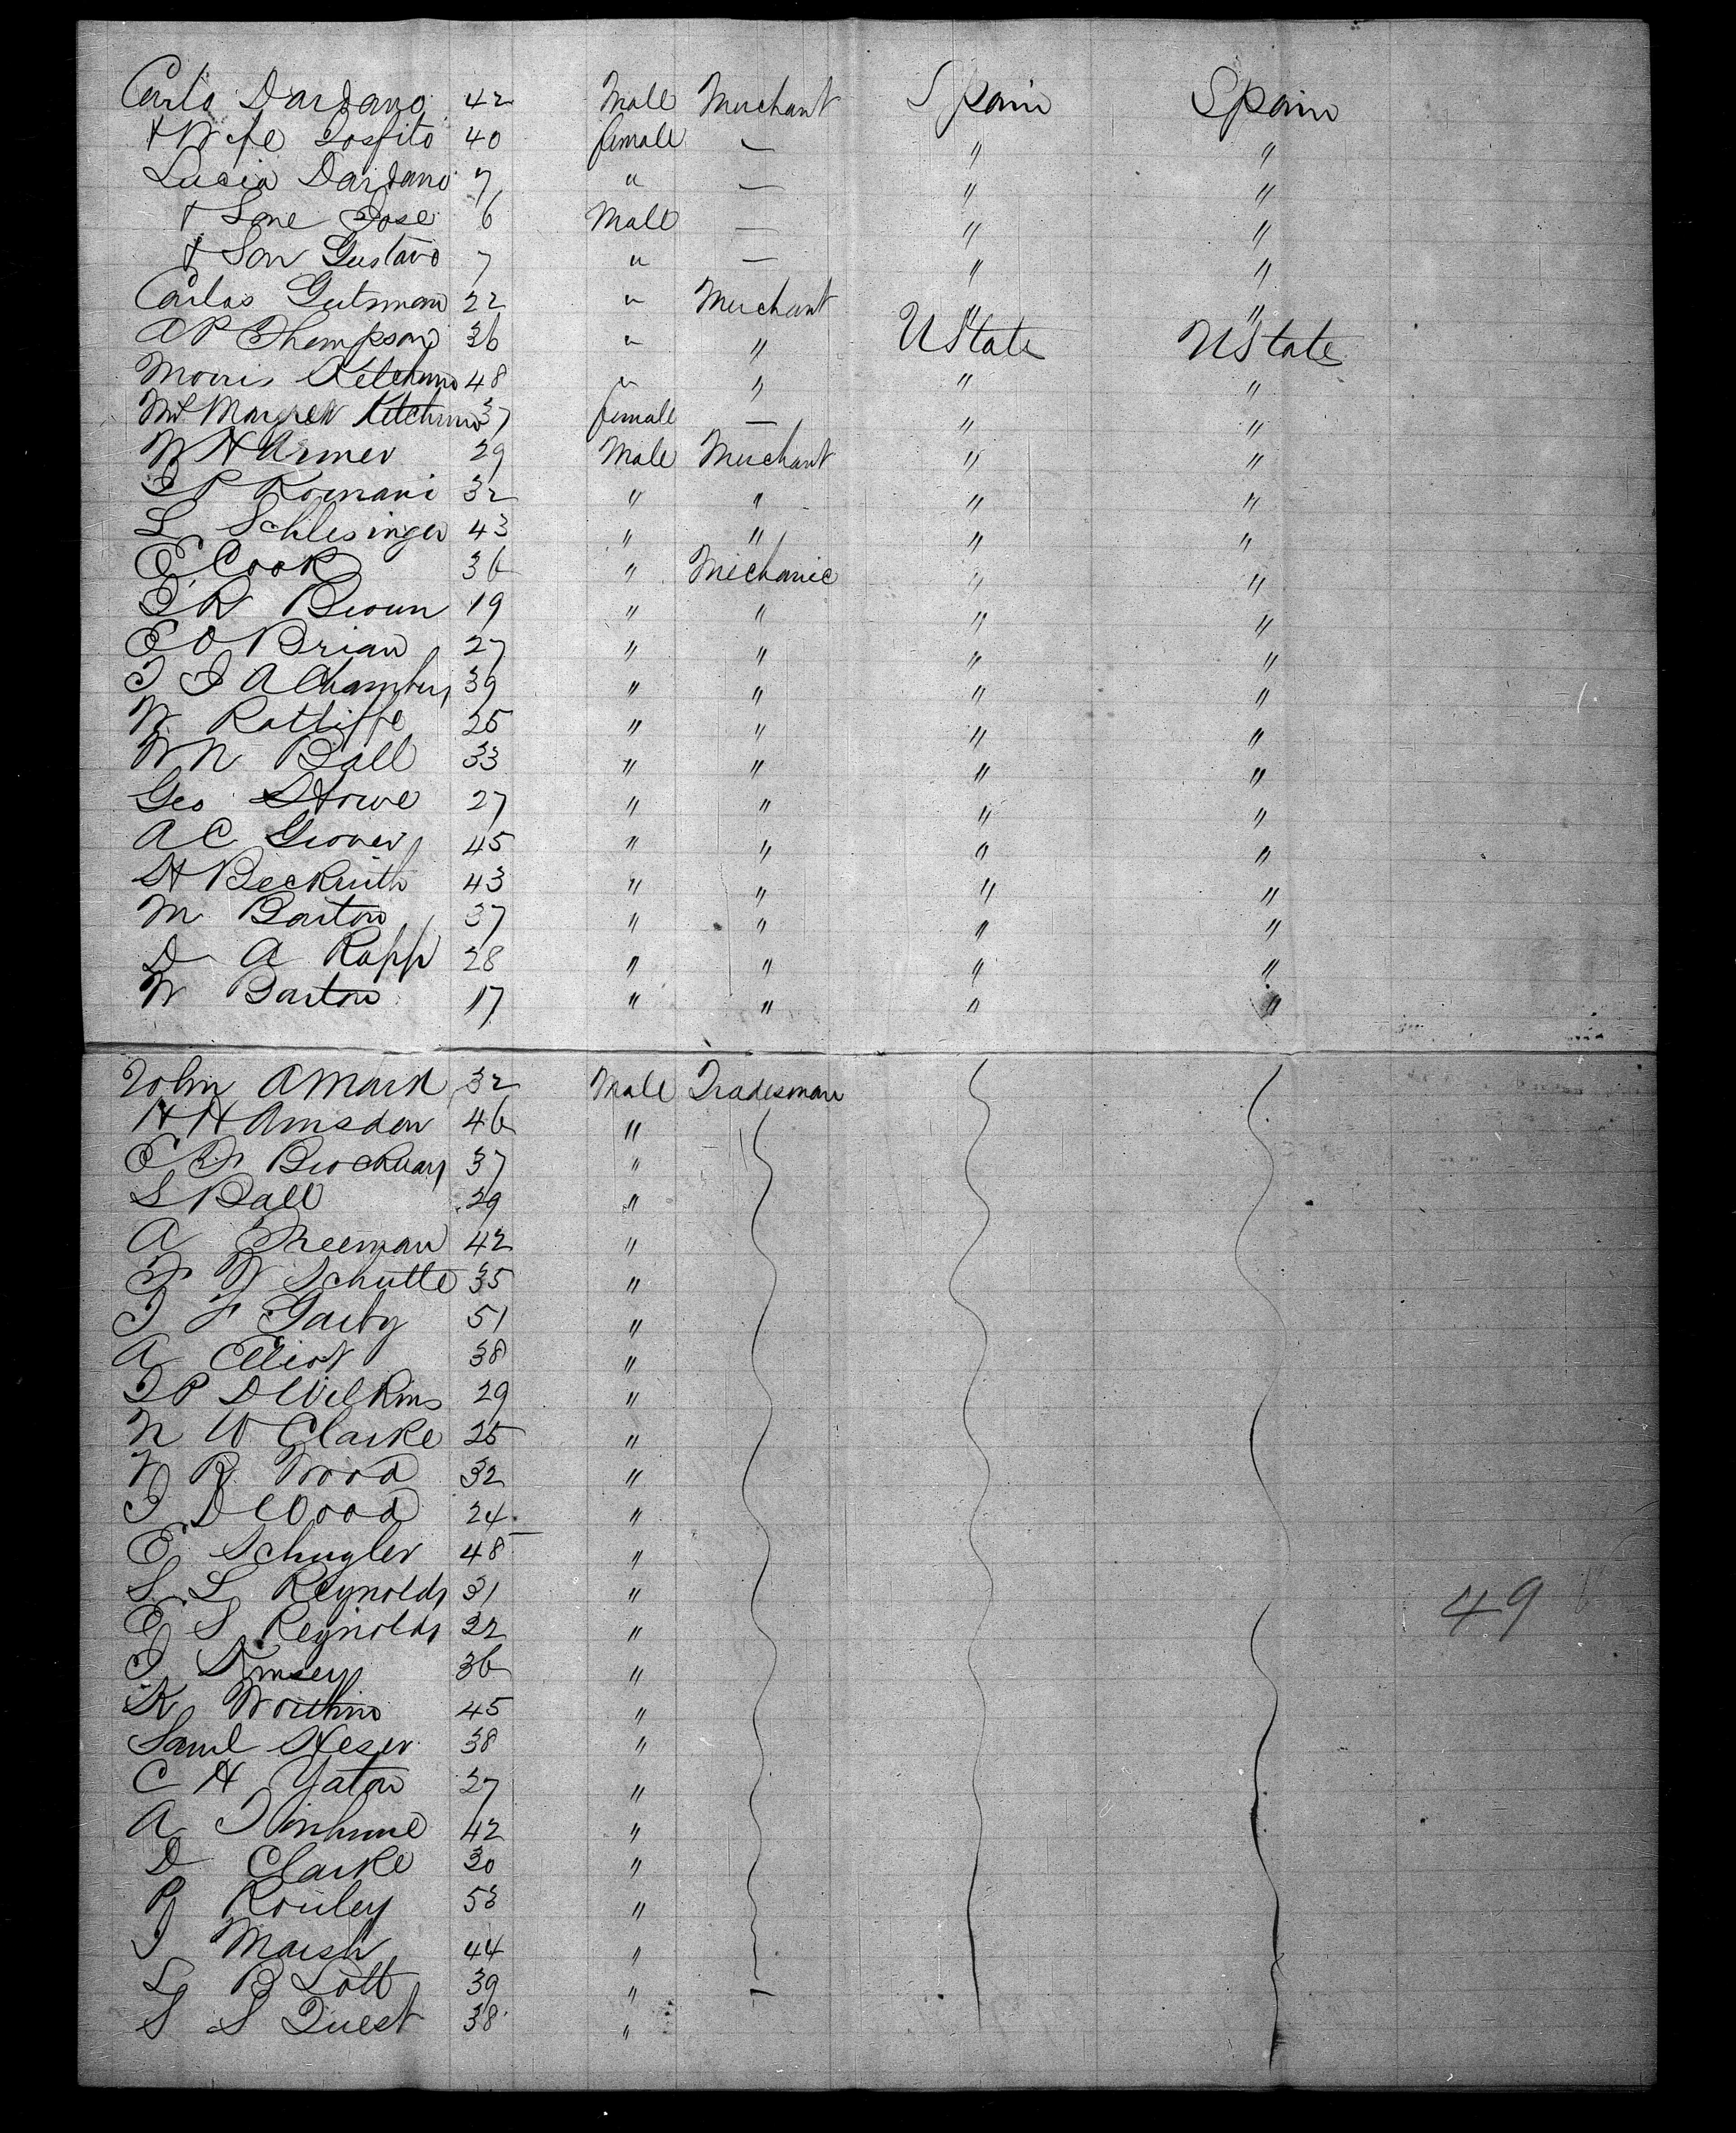 Carlo Dardano 42 Male Merchant Spain Spain
+ Wife Sosfito 40 female — " "
Lucia Dardano 7 " — " "
+ Sone Jose 6 Male — " "
+ Son Gustavo 7 " — " "
Carlos Gutsman 22 " Merchant " "
A P Thompson 36 " " UState UState
Morris Ketchum 48 " " " "
Ms Margret Ketchum 37 female — " "
W H Armer 29 Male Merchant " "
J P Romani 32 " " " "
L Schlesinger 43 " " " "
E Cook 36 " Mechanic " "
J R Brown 19 " " " "
E O Brian 27 " " " "
J J A Chambers 39 " " " "
W Ratliffe 25 " " " "
W N Ball 33 " " " "
Geo Stowe 27 " " " "
A C Grover 45 " " " "
H Beckwith 43 " " " "
M Barton 37 " " " "
D A Rapp 28 " " " "
W Barton 17 " " " "
John A Mark 32 Male Tradesman
H H Amsden 46 "
E F Brockway 37 "
S Ball 29 "
A Freeman 42 "
F W Schutte 35 "
J F Garby 51 "
A Eliot 38 "
J P D Wilkins 29 "
N W Clarke 25 "
W R Wood 32 "
J D Wood 24 "
E Schuyler 48 "
S L Reynolds 31 "
E S Reynolds 22 "
J Kinsey 36 "
K Worthin 45 "
Saml Heser 38 "
C H Yaton 27 "
A 42 "
D Clarke 30 "
P Rouley 53 "
J Marsh 44 "
L B Lott 39 "
S S Quest 38 "
49